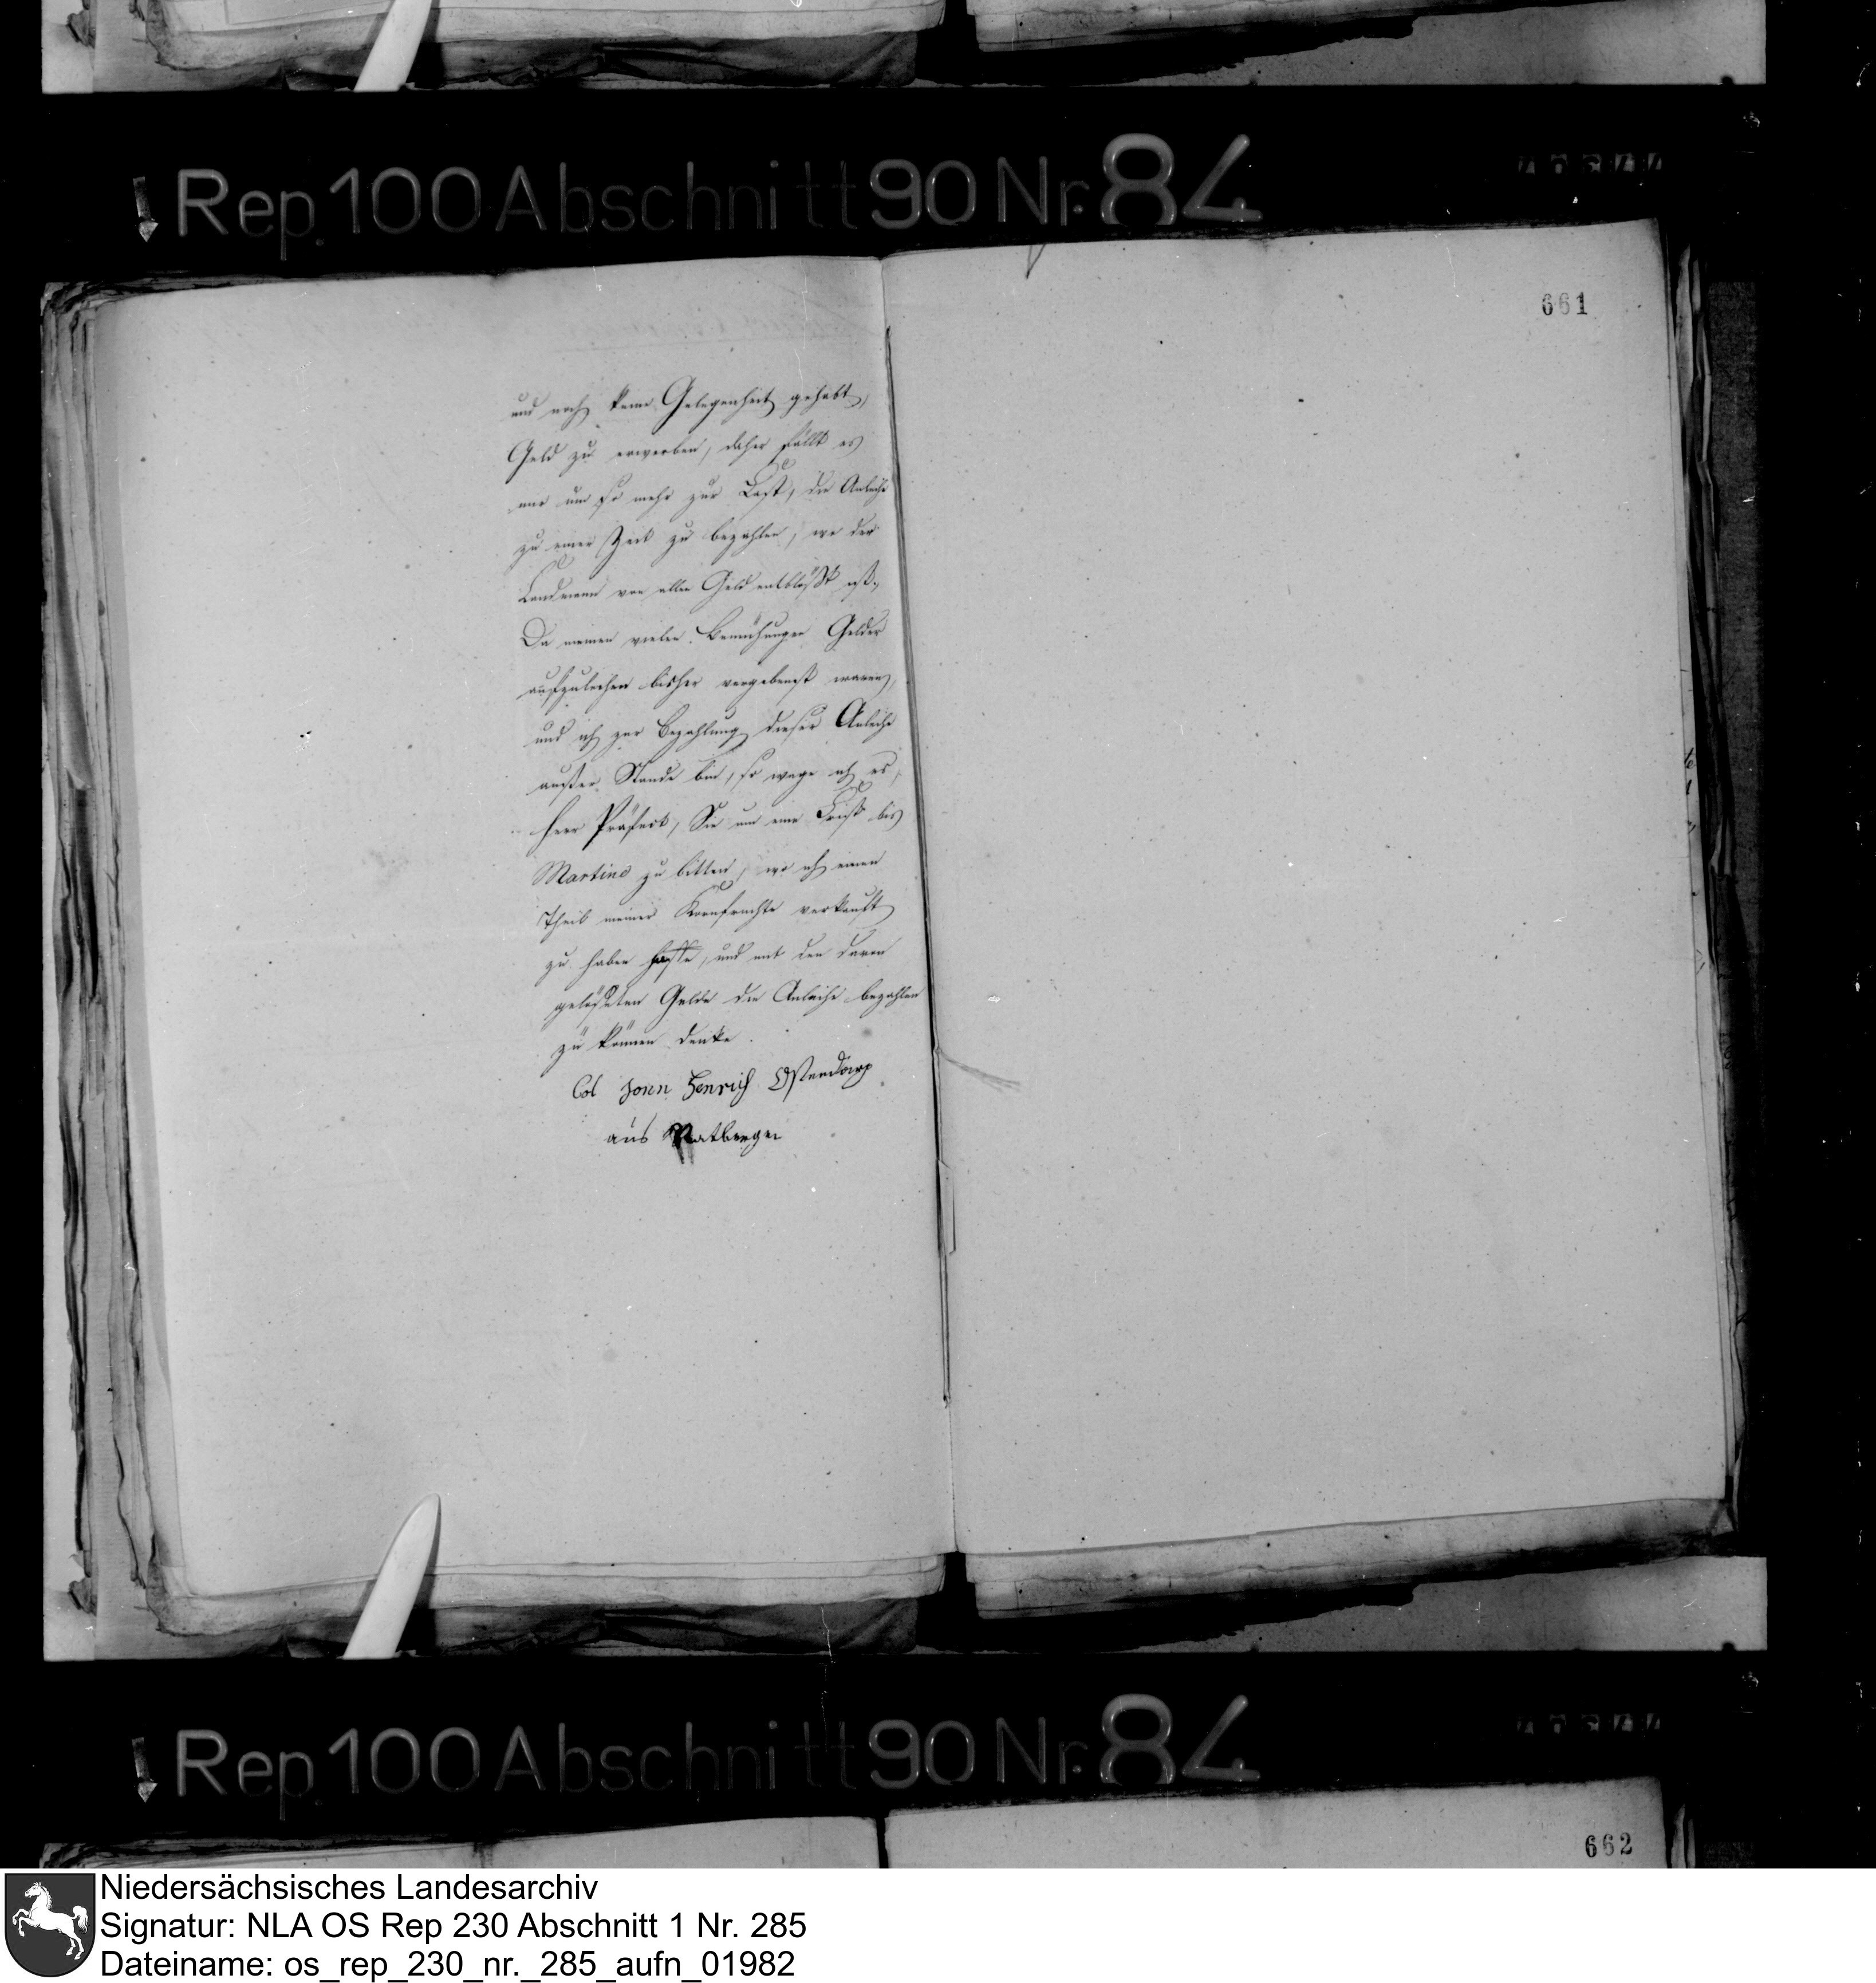 Rep. 100 Abschnitt 90 Nr. 84
661
und noch keine Gelegenheit gehabt,
Geld zu erwerben, daher fällt es
mir um so mehr zur Last, die Anleihe
zu einer Zeit zu bezahlen, wo der
Landmann von allen Geld entblößt ist.
Da meinen vielen Bemühungen Gelder
aufzuleihen bisher vergebenst waren,
und ich zur Bezahlung dieser Anleihe
außer Stande bin, so wage ich es,
Herr Präfect, Sie um eine Frist bis
Martini zu bitten, wo ich einen
Theil meiner Kornfrüchte verkauft
zu haben hoffe, und mit den davon
gelösten Gelde die Anleihe bezahlen
zu können denke.
Col Henrich Ostendarp
aus
Rep. 100 Abschnitt 90 Nr. 84
662
Niedersächsisches Landesarchiv
Signatur: NLA OS Rep 230 Abschnitt 1 Nr. 285
Dateiname: os_rep_230_nr._285_aufn_01982